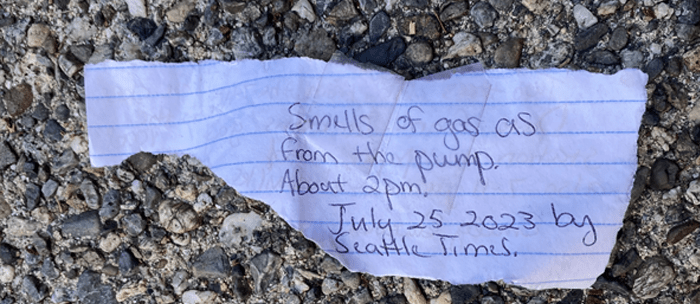 Smells of gas as
from the pump.
About 2pm.
July 25 2023 by
Seattle Times.